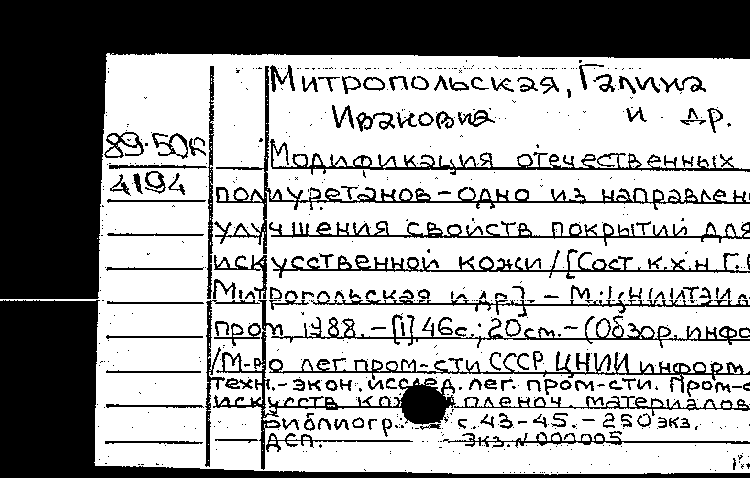 Митропольская, Галина
Ивановна и др.
89-50к
Модификация отечественных
4194
полиуретанов - одно из направлен
улучшения свойств покрытий для
искусственной кожи / [Сост. к.х.н. Г.
Митропольская и др.]. - М.: ЦНИИТЭИл
пром, 1988. - [1], 46 с.; 20 см. - (Обзор. инфо
/ М-во лег. пром-сти СССР, ЦНИИ информ.
техн.-экон. исслед. лег. пром-сти. Пром-с
искусств. кож пленоч. материалов
Библиогр. с. 43-45. - 250 экз.
ДСП. Экз. N 000005